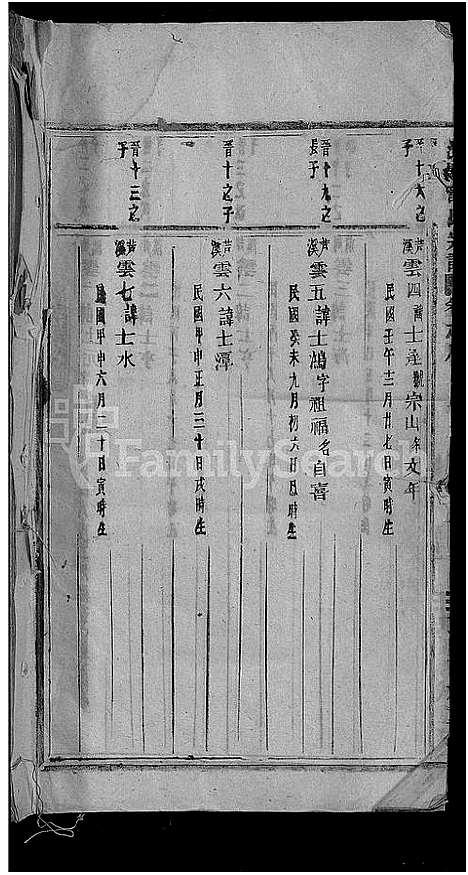 晉十六之
子
芦溪雲四諱士逢號宗山名文年
民國壬午十二月廿七日寅時生
晉十九之
長子
芦溪雲五諱士鴻字祖福名自喜
民國癸未九月初六日巳時生
晉十之子
芦溪雲六諱士潭
民國甲申正月三十日戌時生
晉十三之
子
芦溪雲七諱士水
民國甲申六月二十日寅時生
FamilySearch